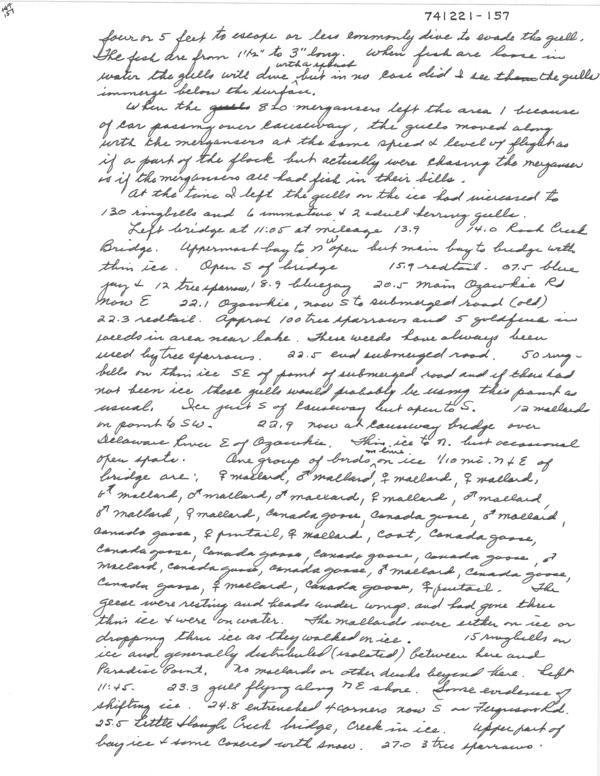 741221-157
157
four or 5 feet to escape or less commonly dive to evade the gull.
The fish are from 1 1/2" to 3" long. When fish are loose in
water the gulls will dive with a splash but in no case did I see them the gulls
immerge below the surface.
When the gulls 820 mergansers left the area 1 because
of car passing over causeway, the gulls moved along
with the mergansers at the same speed & level of flight as
if a part of the flock but actually were chasing the merganser
as if the mergansers all had fish in their bills.
At the time I left the gulls on the ice had increased to
130 ringbills and 6 immature & 2 adult herring gulls.
Left bridge at 11:05 at mileage 13.9 14.0 Rock Creek
Bridge. Uppermost bay to NW open but main bay to bridge with
thin ice. Open S of bridge 15.9 redtail. 07.5 blue
jay & 12 tree sparrow, 18.9 bluejay 20.5 main Ozawkie Rd
now E 22.1 Ozawkie, now S to submerged road (old)
22.3 redtail. Approx 100 tree sparrows and 5 goldfinch in
weeds in area near lake. These weeds have always been
used by tree sparrows. 22.5 end submerged road. 50 ring-
bills on thin ice SE of point of submerged road and if there had
not been ice these gulls would probably be using this point as
usual. Ice just S of causeway but open to S. 12 mallards
on point to SW. 22.9 now at causeway bridge over
Delaware River E of Ozawkie. Thin ice to N. but occasional
open spots. One group of birds in line on ice 1/10 mi. N & E of
bridge are: ♀ mallard, ♂ mallard, ♀ mallard, ♀ mallard,
♂ mallard, ♂ mallard, ♂ mallard, ♀ mallard, ♂ mallard,
♂ mallard, ♀ mallard, Canada goose, Canada goose, ♂ mallard,
Canada goose, ♀ pintail, ♀ mallard, coot, Canada goose,
Canada goose, Canada goose, Canada goose, Canada goose, ♂
mallard, Canada goose, Canada goose, ♂ mallard, Canada goose,
Canada goose, ♀ mallard, Canada goose, ♀ pintail. The
geese were resting and heads under wing and had gone thru
thin ice & were on water. The mallards were either on ice or
dropping thru ice as they walked on ice. 15 ringbills on
ice and generally distributed (isolated) between here and
Paradise Point. No mallards or other ducks beyond here. Left
11:45. 23.3 gull flying along NE shore. Some evidence of
shifting ice. 24.8 entrenched 4 corners now S on Ferguson Rd.
25.5 Little Slough Creek bridge, Creek in ice. Upper part of
bay ice & some covered with snow. 27.0 3 tree sparrows.